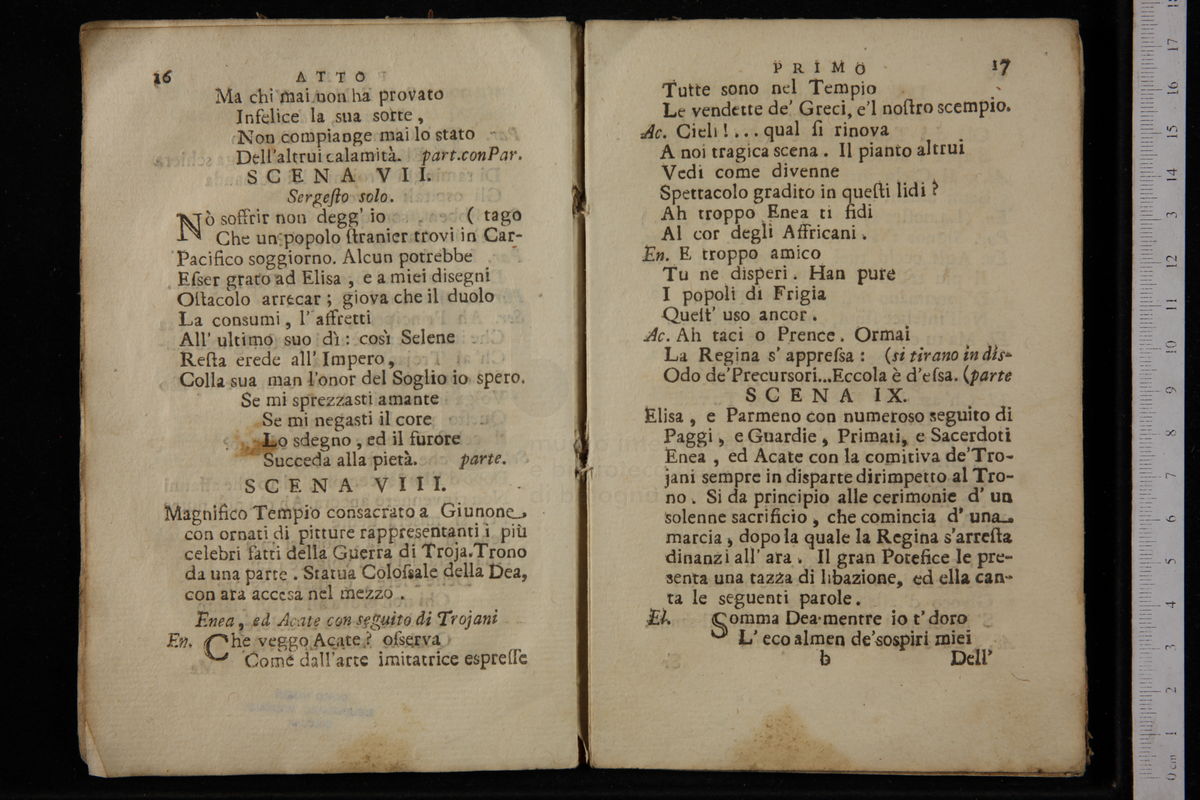 16
ATTO
Ma chi mai non ha provato
Infelice la sua sorte,
Non compiange mai lo stato
Dell'altrui calamità. part.conPar.
SCENA VII.
Sergeſto solo.
NÒ soffrir non degg' io ( tago
Che un popolo ſtranier trovi in Car-
Pacifico soggiorno. Alcun potrebbe
Eſser grato ad Elisa, e a miei disegni
Oſtacolo arrecar; giova che il duolo
La consumi, l'affretti
All' ultimo suo dì: così Selene
Reſta erede all' Impero,
Colla sua man l'onor del Soglio io spero.
Se mi sprezzasti amante
Se mi negasti il core
Lo sdegno, ed il furore
Succeda alla pietà. parte.
SCENA VIII.
Magnifico Tempio consacrato a Giunone,
con ornati di pitture rappresentanti i più
celebri fatti della Guerra di Troja. Trono
da una parte. Statua Coloſsale della Dea,
con ara accesa nel mezzo.
Enea, ed Acate con seguito di Trojani
En. Che veggo Acate? oſserva
Come dall'arte imitatrice espreſſe
PRIMO
17
Tutte sono nel Tempio
Le vendette de' Greci, e'l noſtro scempio.
Ac. Cieli!... qual ſi rinova
A noi tragica scena. Il pianto altrui
Vedi come divenne
Spettacolo gradito in queſti lidi?
Ah troppo Enea ti fidi
Al cor degli Affricani.
En. E troppo amico
Tu ne disperi. Han pure
I popoli di Frigia
Queſt' uso ancor.
Ac. Ah taci o Prence. Ormai
La Regina s' appreſsa: (si tirano in dis-
Odo de'Precursori...Eccola è d'eſsa. (parte
SCENA IX.
Elisa, e Parmeno con numeroso seguito di
Paggi, e Guardie, Primati, e Sacerdoti
Enea, ed Acate con la comitiva de'Tro-
jani sempre in disparte dirimpetto al Tro-
no. Si da principio alle cerimonie d' un
solenne sacrificio, che comincia d' una
marcia, dopo la quale la Regina s'arreſta
dinanzi all' ara. Il gran Potefice le pre-
senta una tazza di libazione, ed ella can-
ta le seguenti parole.
El. Somma Dea mentre io t' doro
L' eco almen de'sospiri miei
b
Dell'